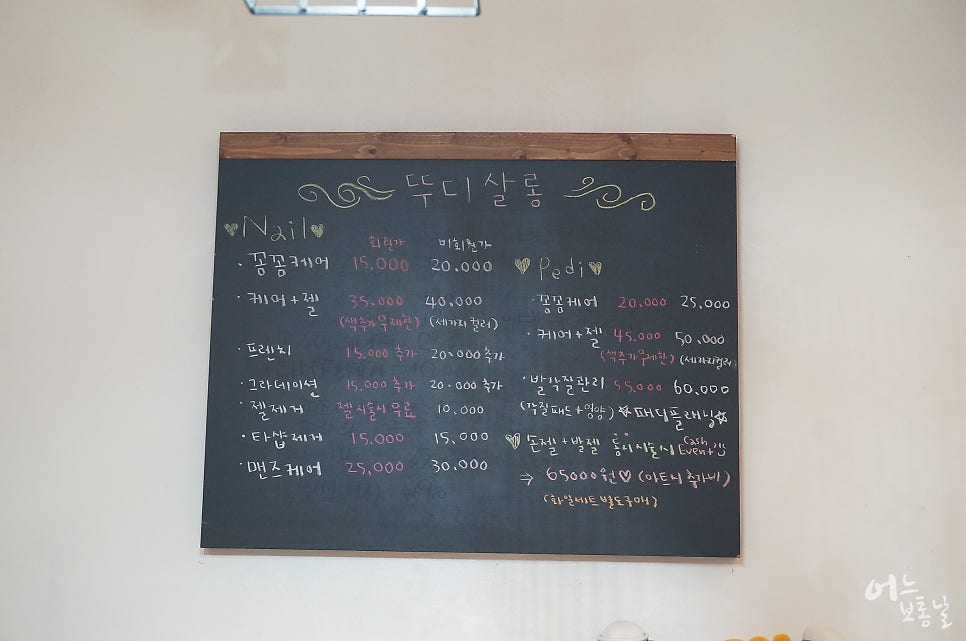 뚜디살롱
♥Nail♥
회원가 비회원가
· 꼼꼼케어 15,000 20.000
· 케어+젤 35.000 40.000
(색추가무제한) (세가지컬러)
· 프렌치 15.000 추가 20.000추가
· 그라데이션 15.000 추가 20.000 추가
· 젤제거 젤시술시 무료 10.000
· 타샵제거 15.000 15.000
· 맨즈케어 25,000 30.000
♥Pedi♥
· 꼼꼼케어 20.000 25,000
· 케어+젤 45.000 50.000
(색추가무제한) (세가지컬러)
· 발각질관리 55,000 60.000
(각질패드+영양) ☆패디플래닝☆
♥손젤+발젤 동시시술시 Cash Event
⇒ 65000원♡ (아트시 추가비)
(화일세트 별도구매)
어느
보통날